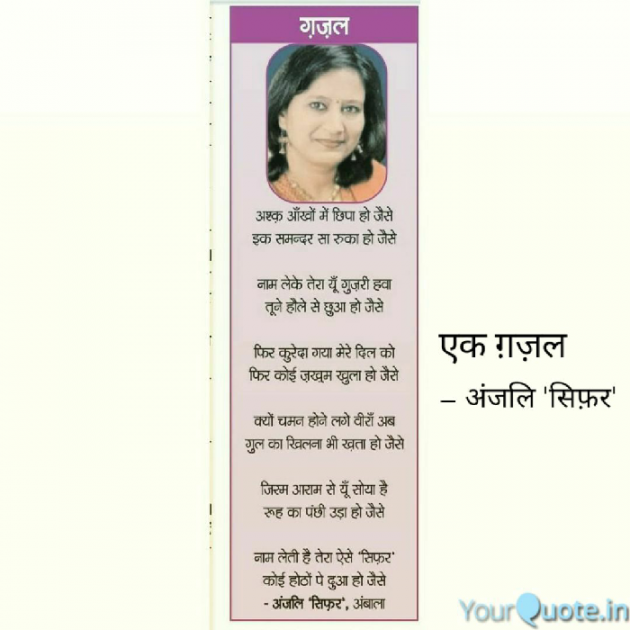 ग़ज़ल
अश्क़ आँखों में छिपा हो जैसे
इक समन्दर सा रुका हो जैसे
नाम लेके तेरा यूँ गुज़री हवा
तूने हौले से छुआ हो जैसे
फिर कुरेदा गया मेरे दिल को
फिर कोई ज़ख़्म खुला हो जैसे
क्यों चमन होने लगे वीराँ अब
गुल का खिलना भी ख़ता हो जैसे
जिस्म आराम से यूँ सोया है
रूह का पंछी उड़ा हो जैसे
नाम लेती है तेरा ऐसे 'सिफ़र'
कोई होठों पे दुआ हो जैसे
- अंजलि 'सिफ़र', अंबाला
एक ग़ज़ल
– अंजलि 'सिफ़र'
YourQuote.in